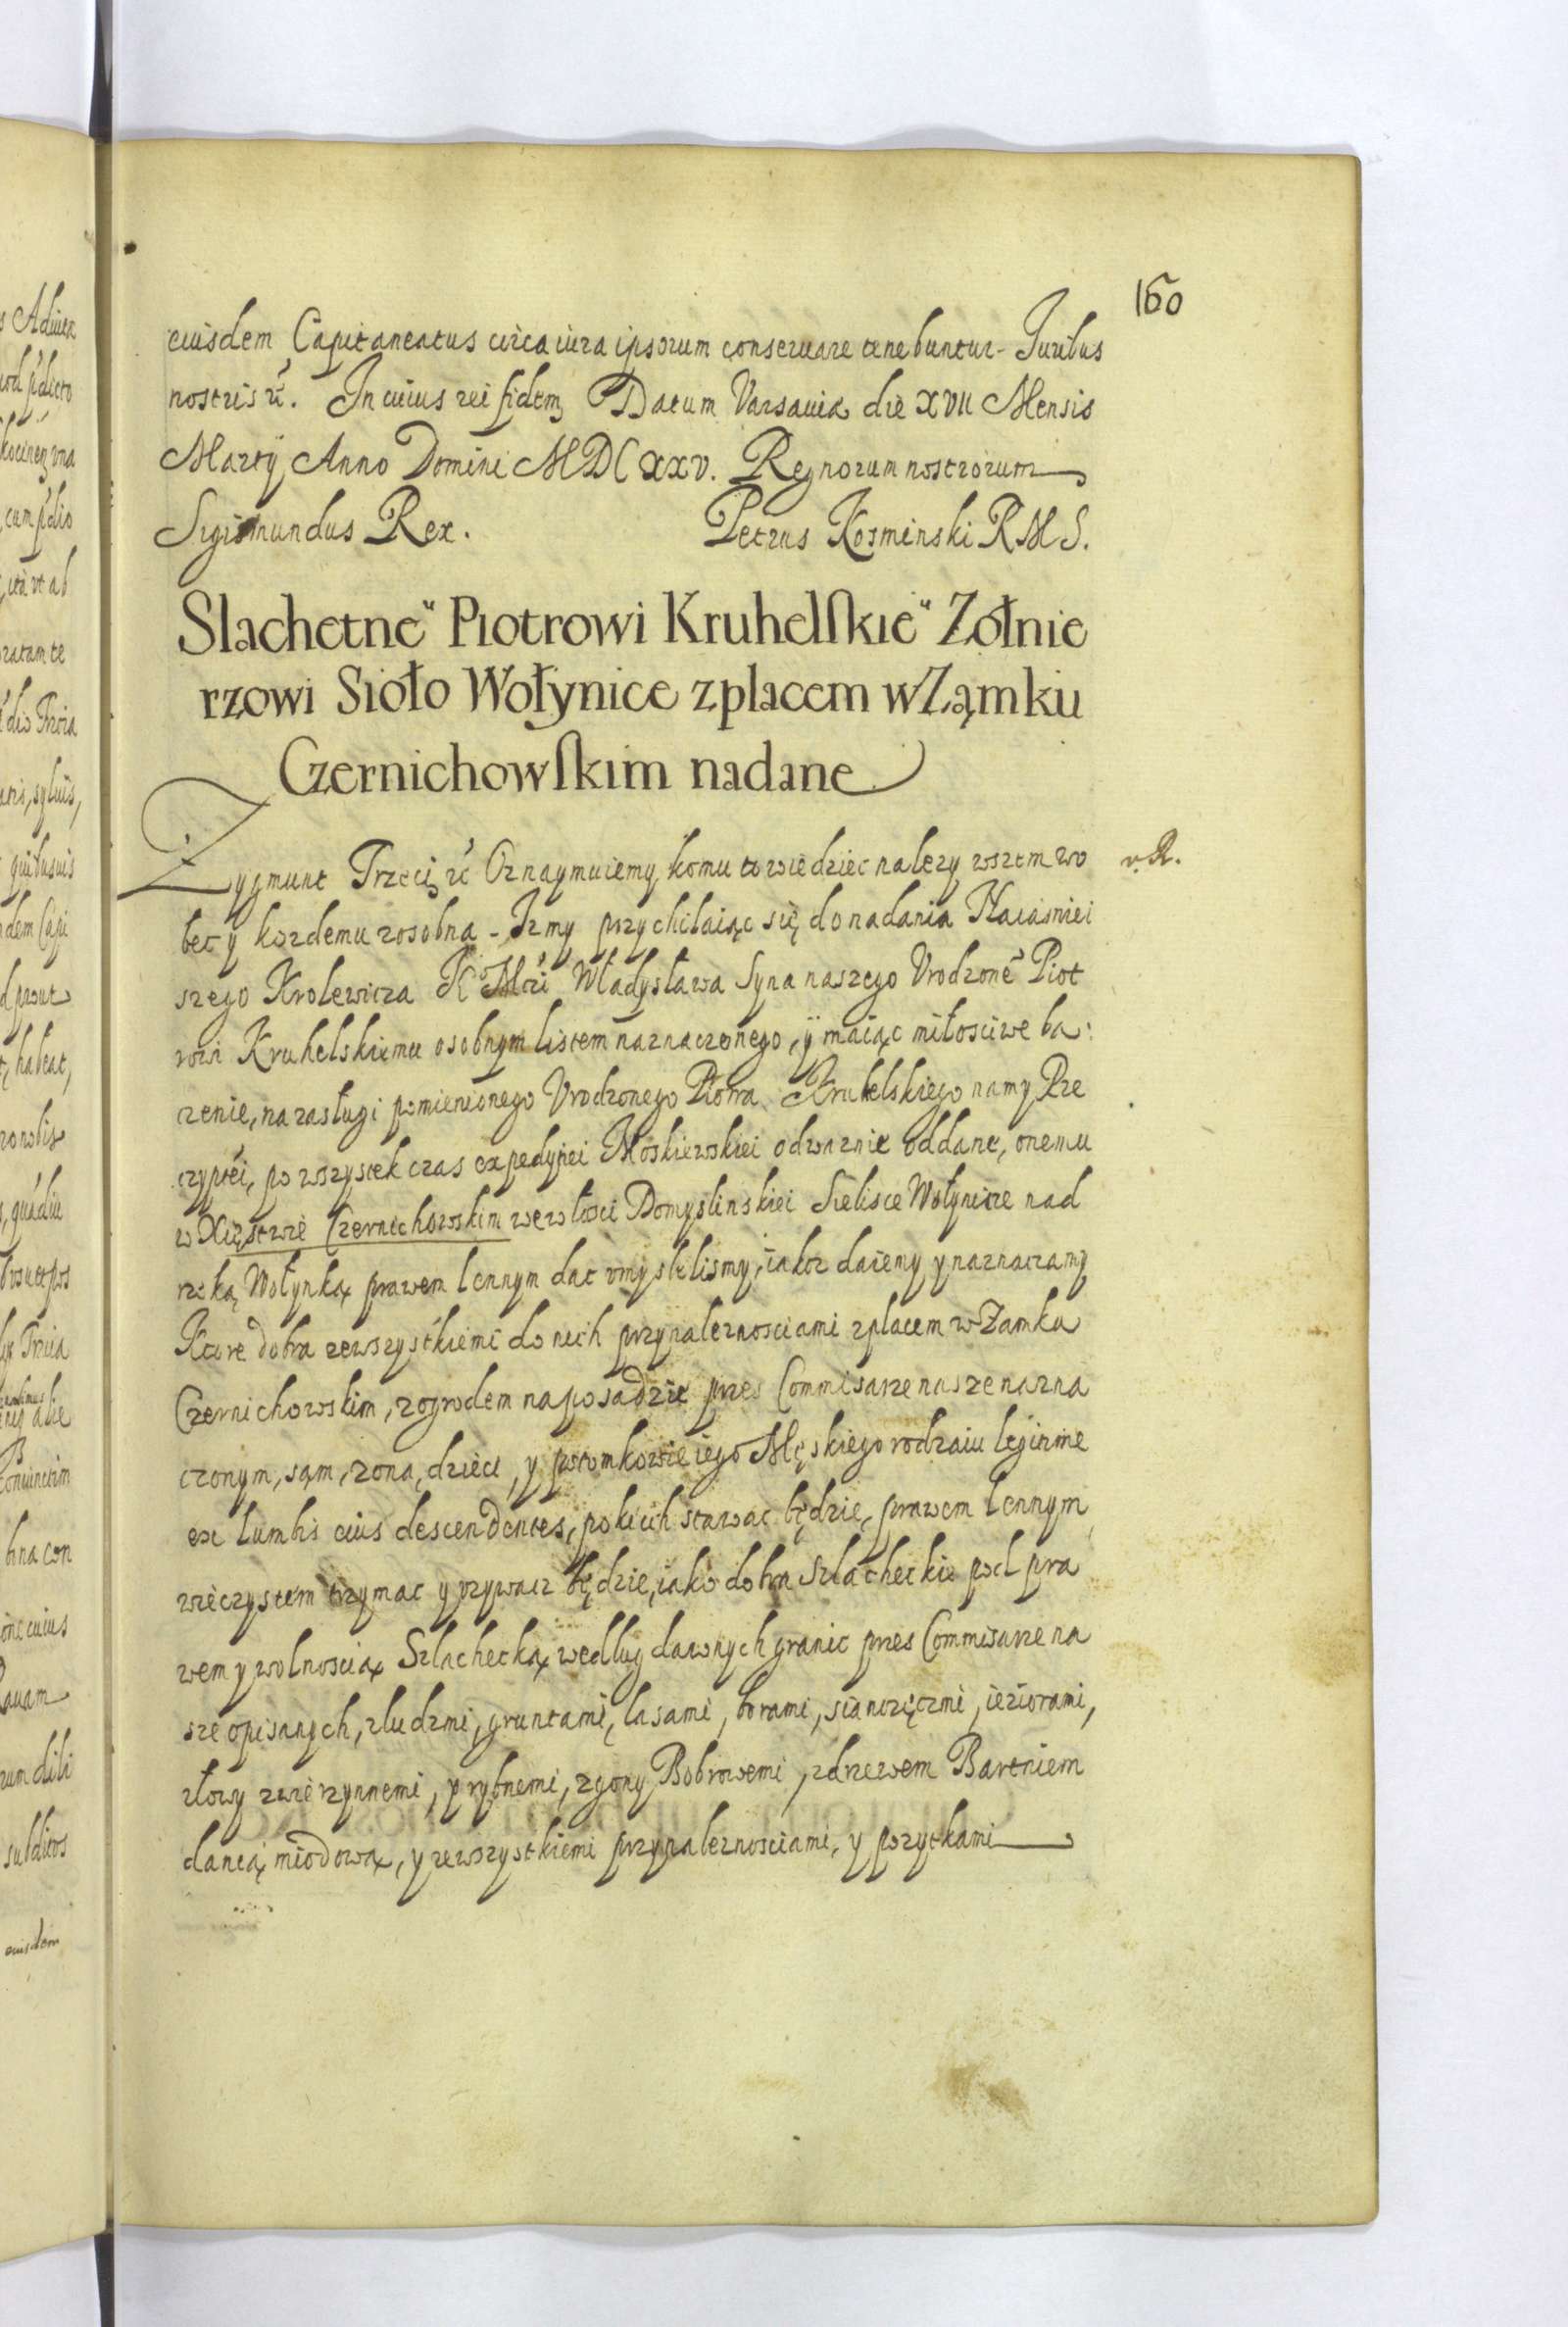 160
eiusdem Capitaneatus circa iura ipsorum conseruare tenebuntur. Juribus
nostris &c. In cuius rei fidem Datum Varsauiæ die XVII Mensis
Martij Anno Domini MDCXXV. Regnorum nostrorum
Sigismundus Rex. Petrus Kosminski R M S.
Slachetne" Piotrowi Kruhelskie" Zołnie
rzowi Sioło Wołynice z placem w Ząmku
Czernichowskim nadane
Zygmunt Trzeci &c Oznaymuiemy komu to wiedziec nalezy wszem wo
v. R.
bec y kozdemu zosobna. Iz my przychilaiąc się do nadania Naiasniei
szego Krolewicza Je° Mści Władysława Syna naszego Vrodzone° Piot
rowi Kruhelskiemu osobnym listem naznaczonego, ÿ maiąc miłosciwe ba:
czenie, na zasługi pomienionego Vrodzonego Piotra Kruhelskiego nam y Rze
czyptéi, po wszystek czas expedÿiei Moskiewskiei odwaznie oddane, onemu
w Xięstwie Czernichowskim we włosci Domyslinskiei Sielisce Wołynice nad
rzeką Wołynką prawem lennym dac vmyslilismy, iakoz daiemy y naznaczamy
Ktore dobra ze wszystkiemi do nich przynaleznosciami z placem w Zamku
Czernichowskim, z ogrodem na posadzie przes Commisarze nasze nazna
czonym, sąm, zona, dzieci, y potomkowie iego Męskiego rodzaiu legitime
ex lumbis eius descendentes, poki ich stawac będzie, prawem lennym
wieczystem trzymac y vzywacz będzie, iako dobra Szlacheckie pod pra
wem y wolnoscią Szlachecką według dawnych granic przes Commisarze na
sze opisanych, z ludzmi, gruntami, lasami, borami, sianozęczmi, ieziorami,
złowy zwierzynnemi, y rybnemi, z gony Bobrowemi, z drzewem Bartniem
danią miodową, y ze wszystkiemi przynaleznosciami, y pozytkami